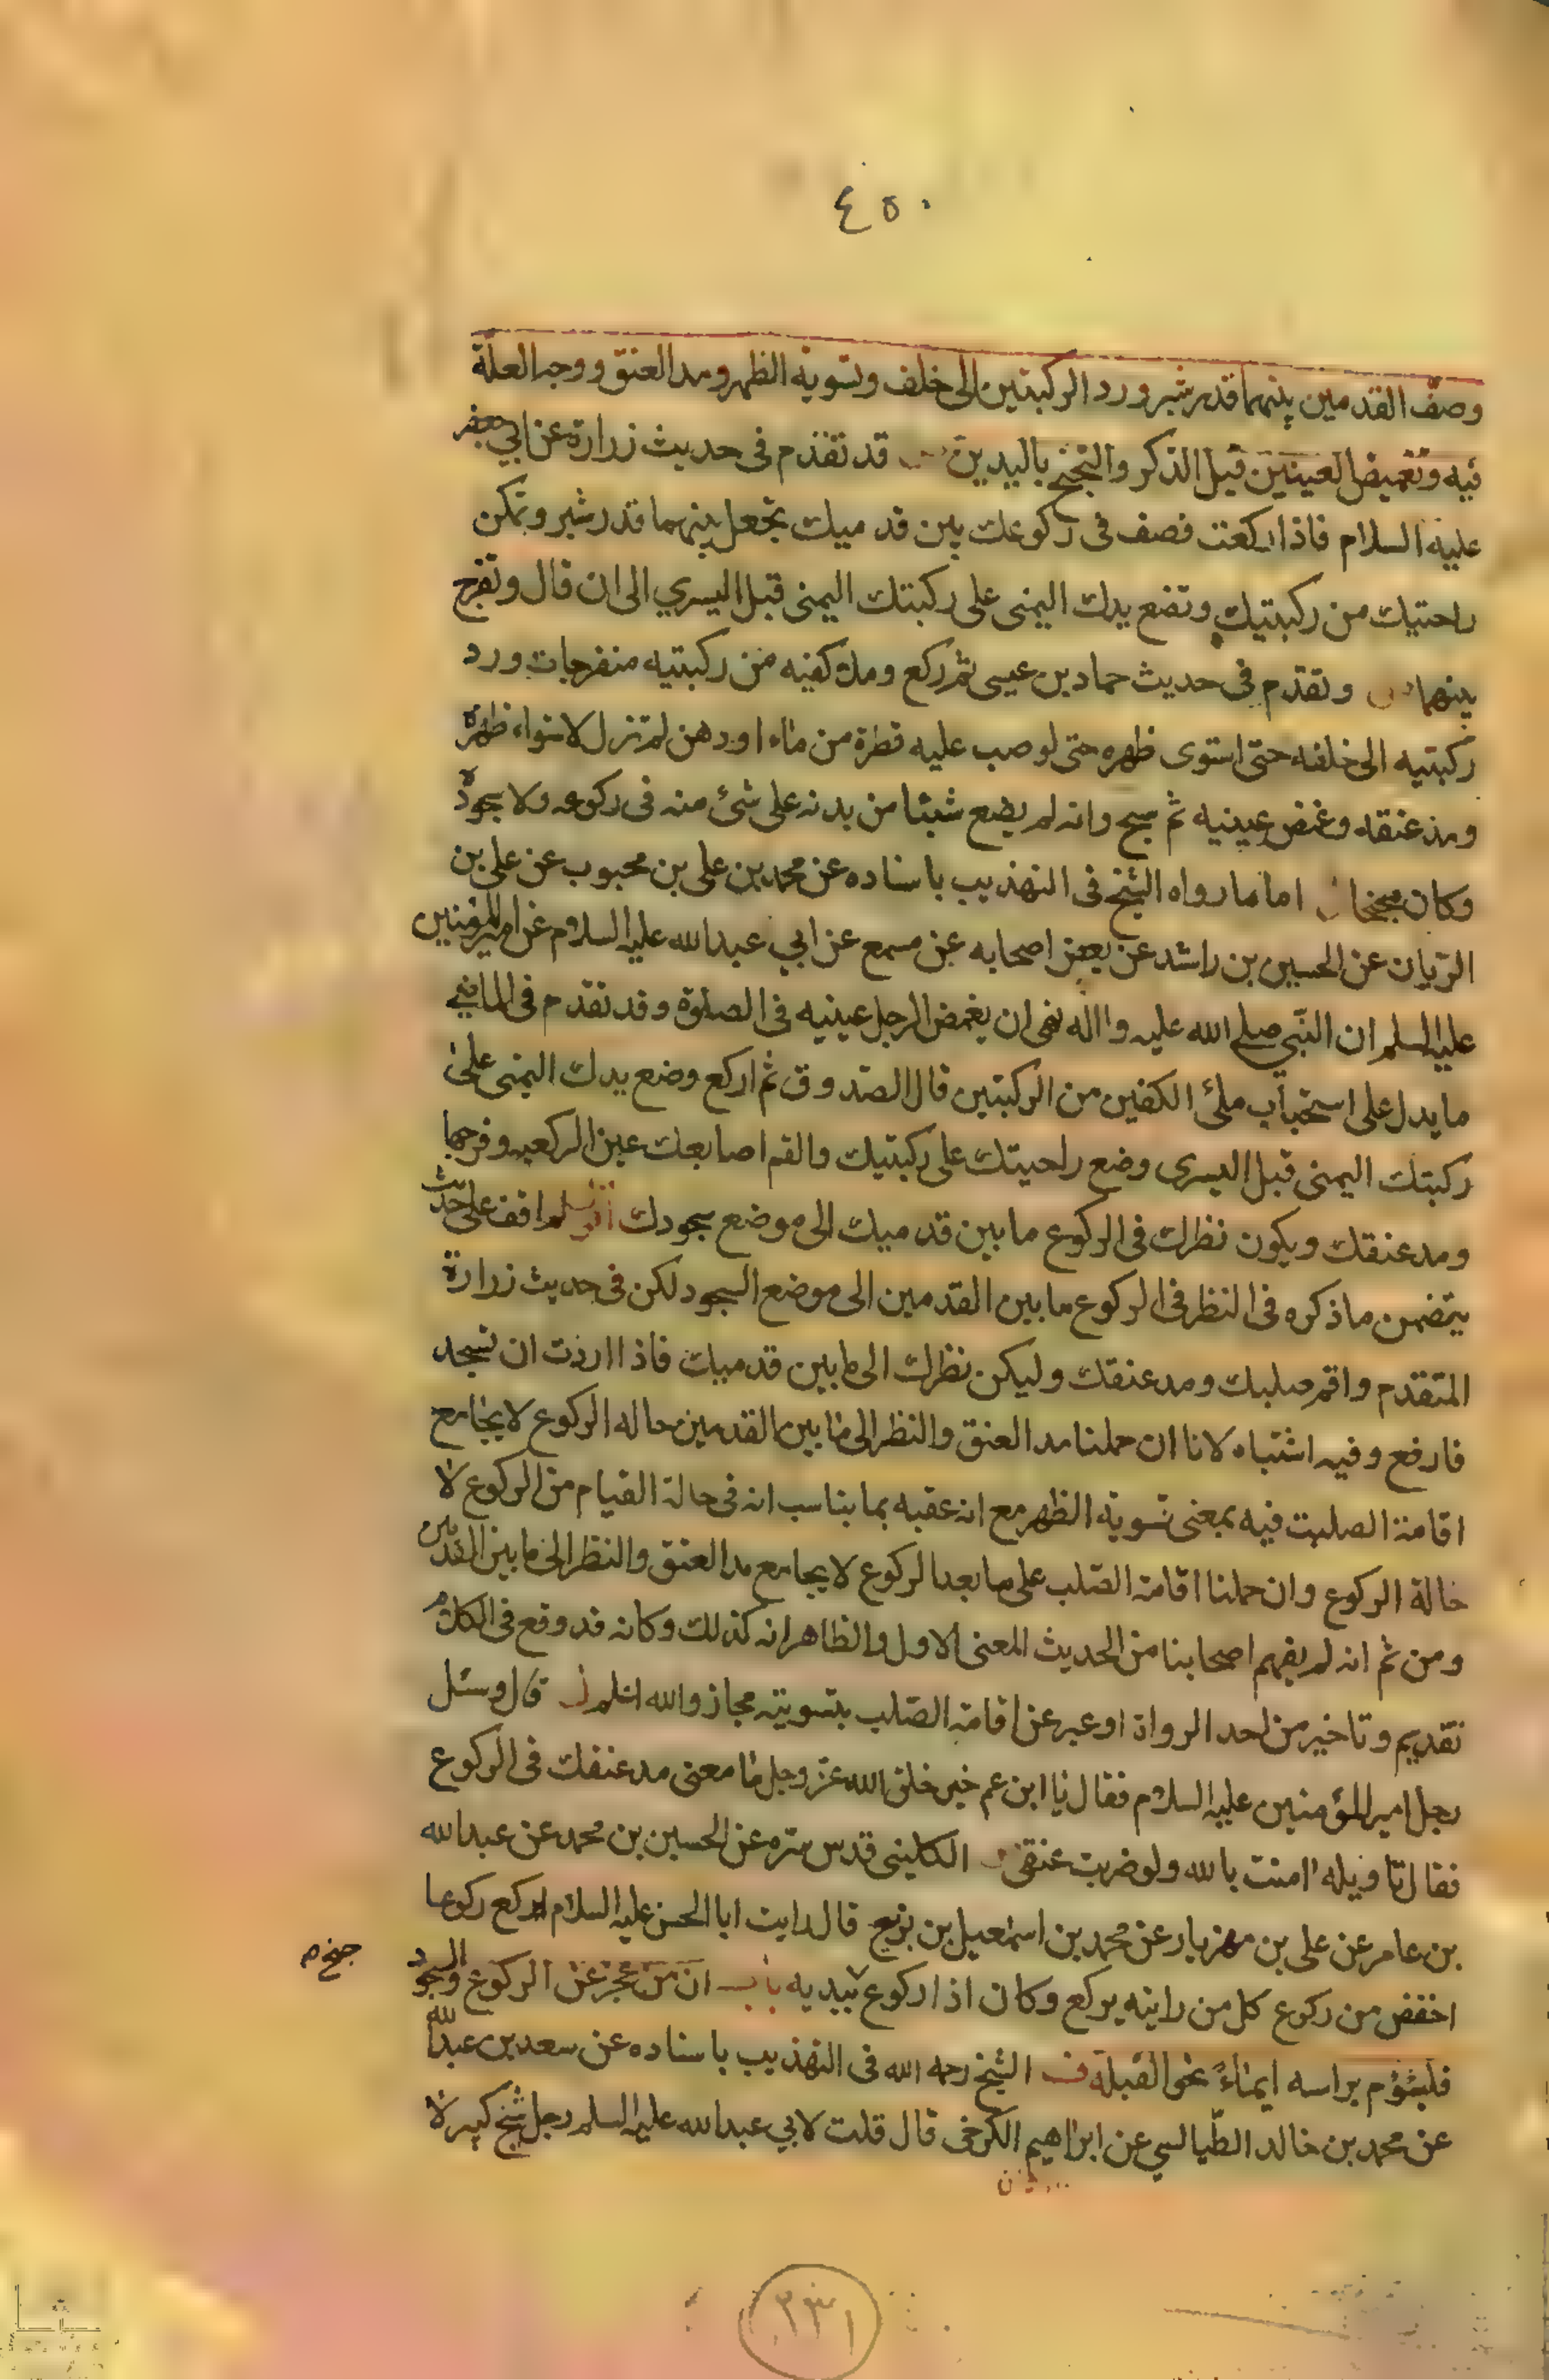 ٤٥٠
وصفّ القدمين بينهما قدر شبر ورد الركبتين الى خلف وتسوية الظهر ومد العنق ووجه العلة
فيه وتغميض العينين قبل الذكر والتجنح باليدين قد تقدم فى حديث زرارة عن ابي جعفر
عليه السلام فاذا ركعت فصف فى ركوعك بين قدميك تجعل بينهما قدر شبر وتمكن
راحتيك من ركبتيك وتضع يدك اليمنى على ركبتك اليمنى قبل اليسري الى ان قال وتفرج
بينهما وتقدم فى حديث حماد بن عيسى ثم ركع وملأ كفيه من ركبتيه منفرجات ورد
ركبتيه الى خلفه حتى استوى ظهره حتى لو صب عليه قطرة من ماء او دهن لم تزل لاستواء ظهره
ومد عنقه وغمض عينيه ثم سبح وانه لم يضع شيئا من بدنه على شئ منه فى ركوعه ولا سجوده
وكان مجنحا اما ما رواه الشيخ فى التهذيب باسناده عن محمد بن على بن محبوب عن على بن
الريان عن الحسين بن راشد عن بعض اصحابه عن مسمع عن ابي عبدالله عليه السلام عن امير المؤمنين
عليه السلم ان النبي صلى الله عليه واله نهى ان يغمض الرجل عينيه فى الصلوة وقد تقدم فى الماضي
ما يدل على استحباب ملئ الكفين من الركبتين قال الصدوق ثم اركع وضع يدك اليمنى على
ركبتك اليمنى قبل اليسرى وضع راحيتك على ركبتيك والقم اصابعك عين الركعبه وفرجها
ومد عنقك ويكون نظرك فى الركوع ما بين قدميك الى موضع سجودك لم اقف على حديث
يتضمن ما ذكره فى النظر فى الركوع ما بين القدمين الى موضع السجود لكن فى حديث زرارة
المتقدم واقم صلبك ومد عنقك وليكن نظرك الى ما بين قدميك فاذا اردت ان تسجد
فارفع وفيه اشتباه لانا ان حملنا مد العنق والنظر الى ما بين القدمين حاله الركوع لا يجامع
اقامة الصلب فيه بمعنى تسوية الظهر مع انه عقبه بما يناسب انه فى حالة القيام من الركوع لا
حالة الركوع وان حملنا اقامة الصلب على ما بعد الركوع لا يجامع مد العنق والنظر الى ما بين القدمين
ومن ثم انه لم يفهم اصحابنا من الحديث المعنى الاول والظاهر انه كذلك وكانه قد وقع فى الكلام
تقديم وتاخير من احد الرواة او عبر عن اقامة الصلب بتسويته مجاز والله اعلم قال وسئل
رجل امير المؤمنين عليه السلام فقال يا ابن عم خير خلق الله عز وجل ما معنى مد عنقك فى الركوع
فقال تاويله امنت بالله ولو ضربت عنقى الكلينى قدس سره عن الحسين بن محمد عن عبدالله
بن عامر عن على بن مهزيار عن محمد بن اسمعيل بن بزيع قال رايت ابا الحسن عليه السلام يركع ركوعا
اخفض من ركوع كل من رايته يركع وكان اذا ركوع بيديه باب ان من عجز عن الركوع والسجود
جنح م
فليؤم براسه ايماءً نحو القبلة الشيخ رحمه الله فى التهذيب باسناده عن سعد بن عبدالله
عن محمد بن خالد الطيالسي عن ابراهيم الكرخى قال قلت لابي عبدالله عليه السلم رجل شيخ كبير لا
٢٣١